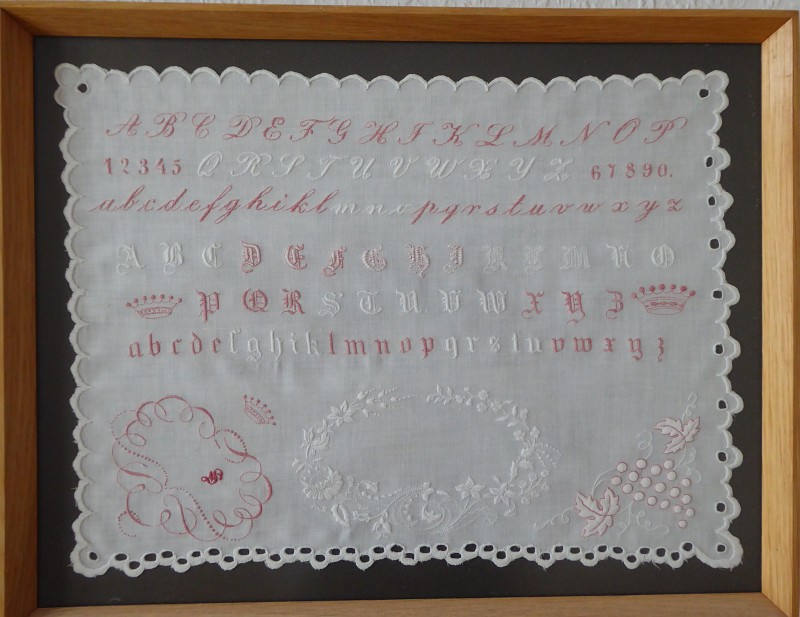 A B C D E F G H I K L M N O P
1 2 3 4 5 Q R S T U V W X Y Z 6 7 8 9 0.
a b c d e f g h i k l m n o p q r s t u v w x y z
A B C D E F G H I K L M N O
P Q R S T U V W X Y Z
a b c d e f g h i k l m n o p q r s t u v w x y z